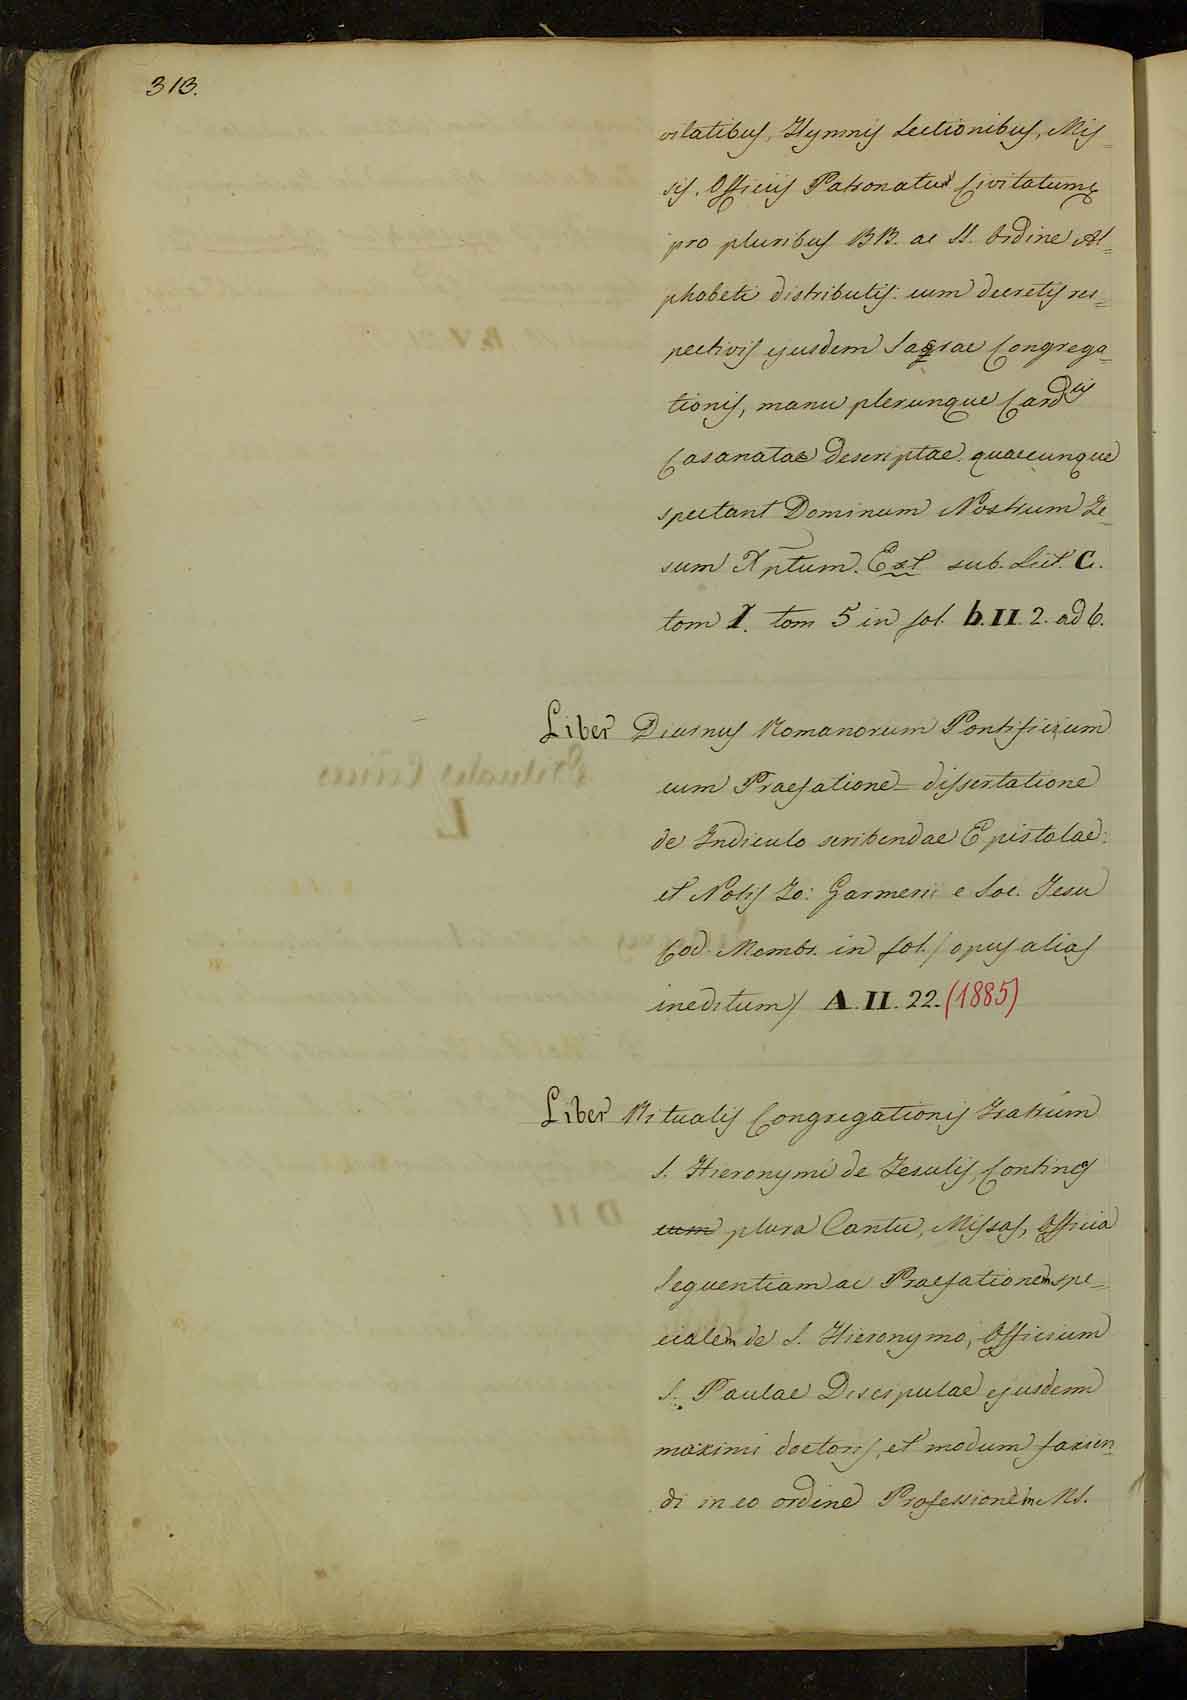 313.
vitatibus, Hymnis Lectionibus, Mis=
sis. Officiis Patronatus Civitatumq
pro pluribus BB. ac SS. Ordine Al=
phabeti distributis: cum decretis res=
pectivis ejusdem Sacrae Congrega=
tionis, manu plerunque Card^lis
Casanatae descriptae. quaecunque
spectant Dominum Nostrum Je=
sum Xptum. Ext sub. Litt. C.
tom I. tom 5 in fol. b.II.2. ad 6.
Liber Diurnus Romanorum Pontificium
cum Praefatione = dissertatione
de Indiculo scribendae Epistolae:
et Notis Jo: Garnerii e Soc. Jesu
Cod. Membr. in fol. / opus alias
ineditum / A.II.22. (1885)
Liber Ritualis Congregationis Fratrum
S. Hieronymi de Fesulis, Continens
cum plura Cantu, Missas, Officia
Sequentiam ac Praefationem spe=
cialem de S. Hieronymo, Officium
S. Paulae Discipulae ejusdem
maximi doctoris, et modum facien=
di in eo ordine Professionem MS.